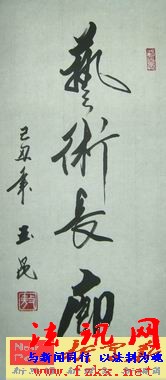 藝術長廊
己丑年
玉昆
法讯网
与新闻同行 以法制为魂